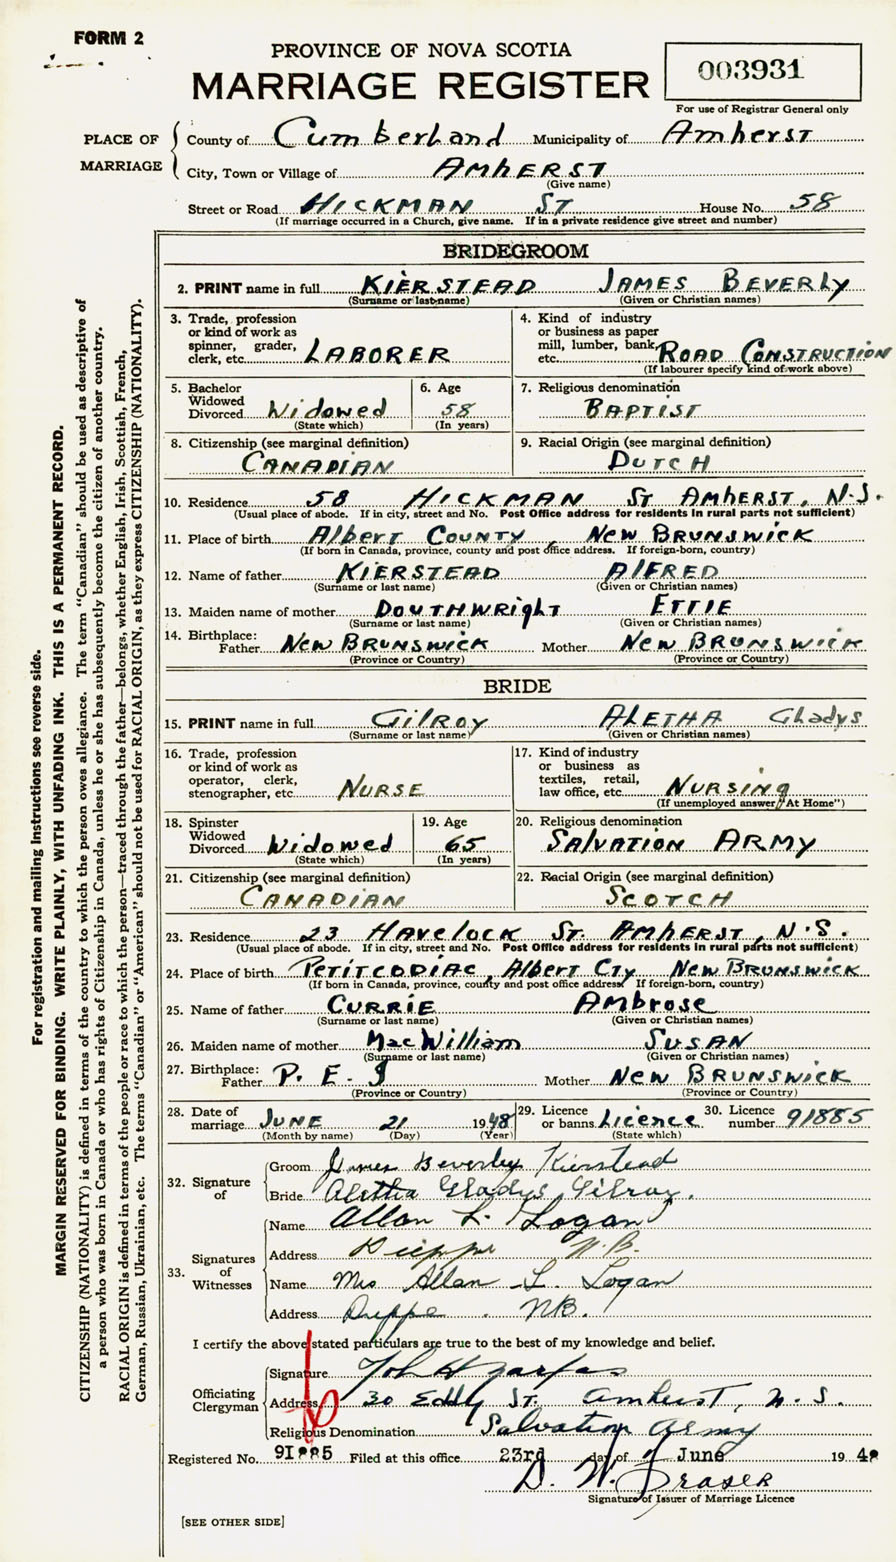 FORM 2
PROVINCE OF NOVA SCOTIA
MARRIAGE REGISTER
003931
For use of Registrar General only
PLACE OF MARRIAGE
County of Cumberland Municipality of Amherst
City, Town or Village of AMHERST
(Give name)
Street or Road HICKMAN ST House No. 58
(If marriage occurred in a Church, give name. If in a private residence give street and number)
BRIDEGROOM
2. PRINT name in full KIERSTEAD JAMES BEVERLY
(Surname or last name) (Given or Christian names)
3. Trade, profession or kind of work as spinner, grader, clerk, etc. LABORER
4. Kind of industry or business as paper mill, lumber, bank, etc. ROAD CONSTRUCTION
(If labourer specify kind of work above)
5. Bachelor Widowed Divorced Widowed
(State which)
6. Age 58
(In years)
7. Religious denomination
BAPTIST
8. Citizenship (see marginal definition)
CANADIAN
9. Racial Origin (see marginal definition)
DUTCH
10. Residence 58 HICKMAN St AMHERST, N.S.
(Usual place of abode. If in city, street and No. Post Office address for residents in rural parts not sufficient)
11. Place of birth Albert County, New Brunswick
(If born in Canada, province, county and post office address. If foreign-born, country)
12. Name of father KIERSTEAD AlFRED
(Surname or last name) (Given or Christian names)
13. Maiden name of mother DOUTHWRIGHT ETTIE
(Surname or last name) (Given or Christian names)
14. Birthplace: Father New Brunswick Mother New Brunswick
(Province or Country) (Province or Country)
BRIDE
15. PRINT name in full GilROY ALETHA Gladys
(Surname or last name) (Given or Christian names)
16. Trade, profession or kind of work as operator, clerk, stenographer, etc. NURSE
17. Kind of industry or business as textiles, retail, law office, etc. NURSING
(If unemployed answer "At Home")
18. Spinster Widowed Divorced Widowed
(State which)
19. Age 65
(In years)
20. Religious denomination
SALVATION ARMY
21. Citizenship (see marginal definition)
CANADIAN
22. Racial Origin (see marginal definition)
SCOTCH
23. Residence 23 HAVELOCK ST. AMHERST, N.S.
(Usual place of abode. If in city, street and No. Post Office address for residents in rural parts not sufficient)
24. Place of birth PETITCODIAC, Albert Cty New Brunswick
(If born in Canada, province, county and post office address. If foreign-born, country)
25. Name of father CURRIE Ambrose
(Surname or last name) (Given or Christian names)
26. Maiden name of mother MacWilliam SUSAN
(Surname or last name) (Given or Christian names)
27. Birthplace: Father P. E. I Mother New Brunswick
(Province or Country) (Province or Country)
28. Date of marriage JUNE 21 1948
(Month by name) (Day) (Year)
29. Licence or banns Licence
(State which)
30. Licence number 91885
32. Signature of
Groom James Beverley Kierstead
Bride Aletha Gladys Gilroy.
33. Signatures of Witnesses
Name Allan L. Logan
Address Dieppe N.B.
Name Mrs Allan L. Logan
Address Dieppe. NB.
I certify the above stated particulars are true to the best of my knowledge and belief.
Officiating Clergyman
Signature John H
Address 30 Eddy St. Amherst, N.S.
Religious Denomination Salvation Army
Registered No. 91885 Filed at this office 23rd day of June 1948
D. W. Fraser
Signature of Issuer of Marriage Licence
[SEE OTHER SIDE]
For registration and mailing instructions see reverse side.
MARGIN RESERVED FOR BINDING. WRITE PLAINLY, WITH UNFADING INK. THIS IS A PERMANENT RECORD.
CITIZENSHIP (NATIONALITY) is defined in terms of the country to which the person owes allegiance. The term "Canadian" should be used as descriptive of
a person who was born in Canada or who has rights of Citizenship in Canada, unless he or she has subsequently become the citizen of another country.
RACIAL ORIGIN is defined in terms of the people or race to which the person—traced through the father—belongs, whether English, Irish, Scottish, French,
German, Russian, Ukrainian, etc. The terms "Canadian" or "American" should not be used for RACIAL ORIGIN, as they express CITIZENSHIP (NATIONALITY).